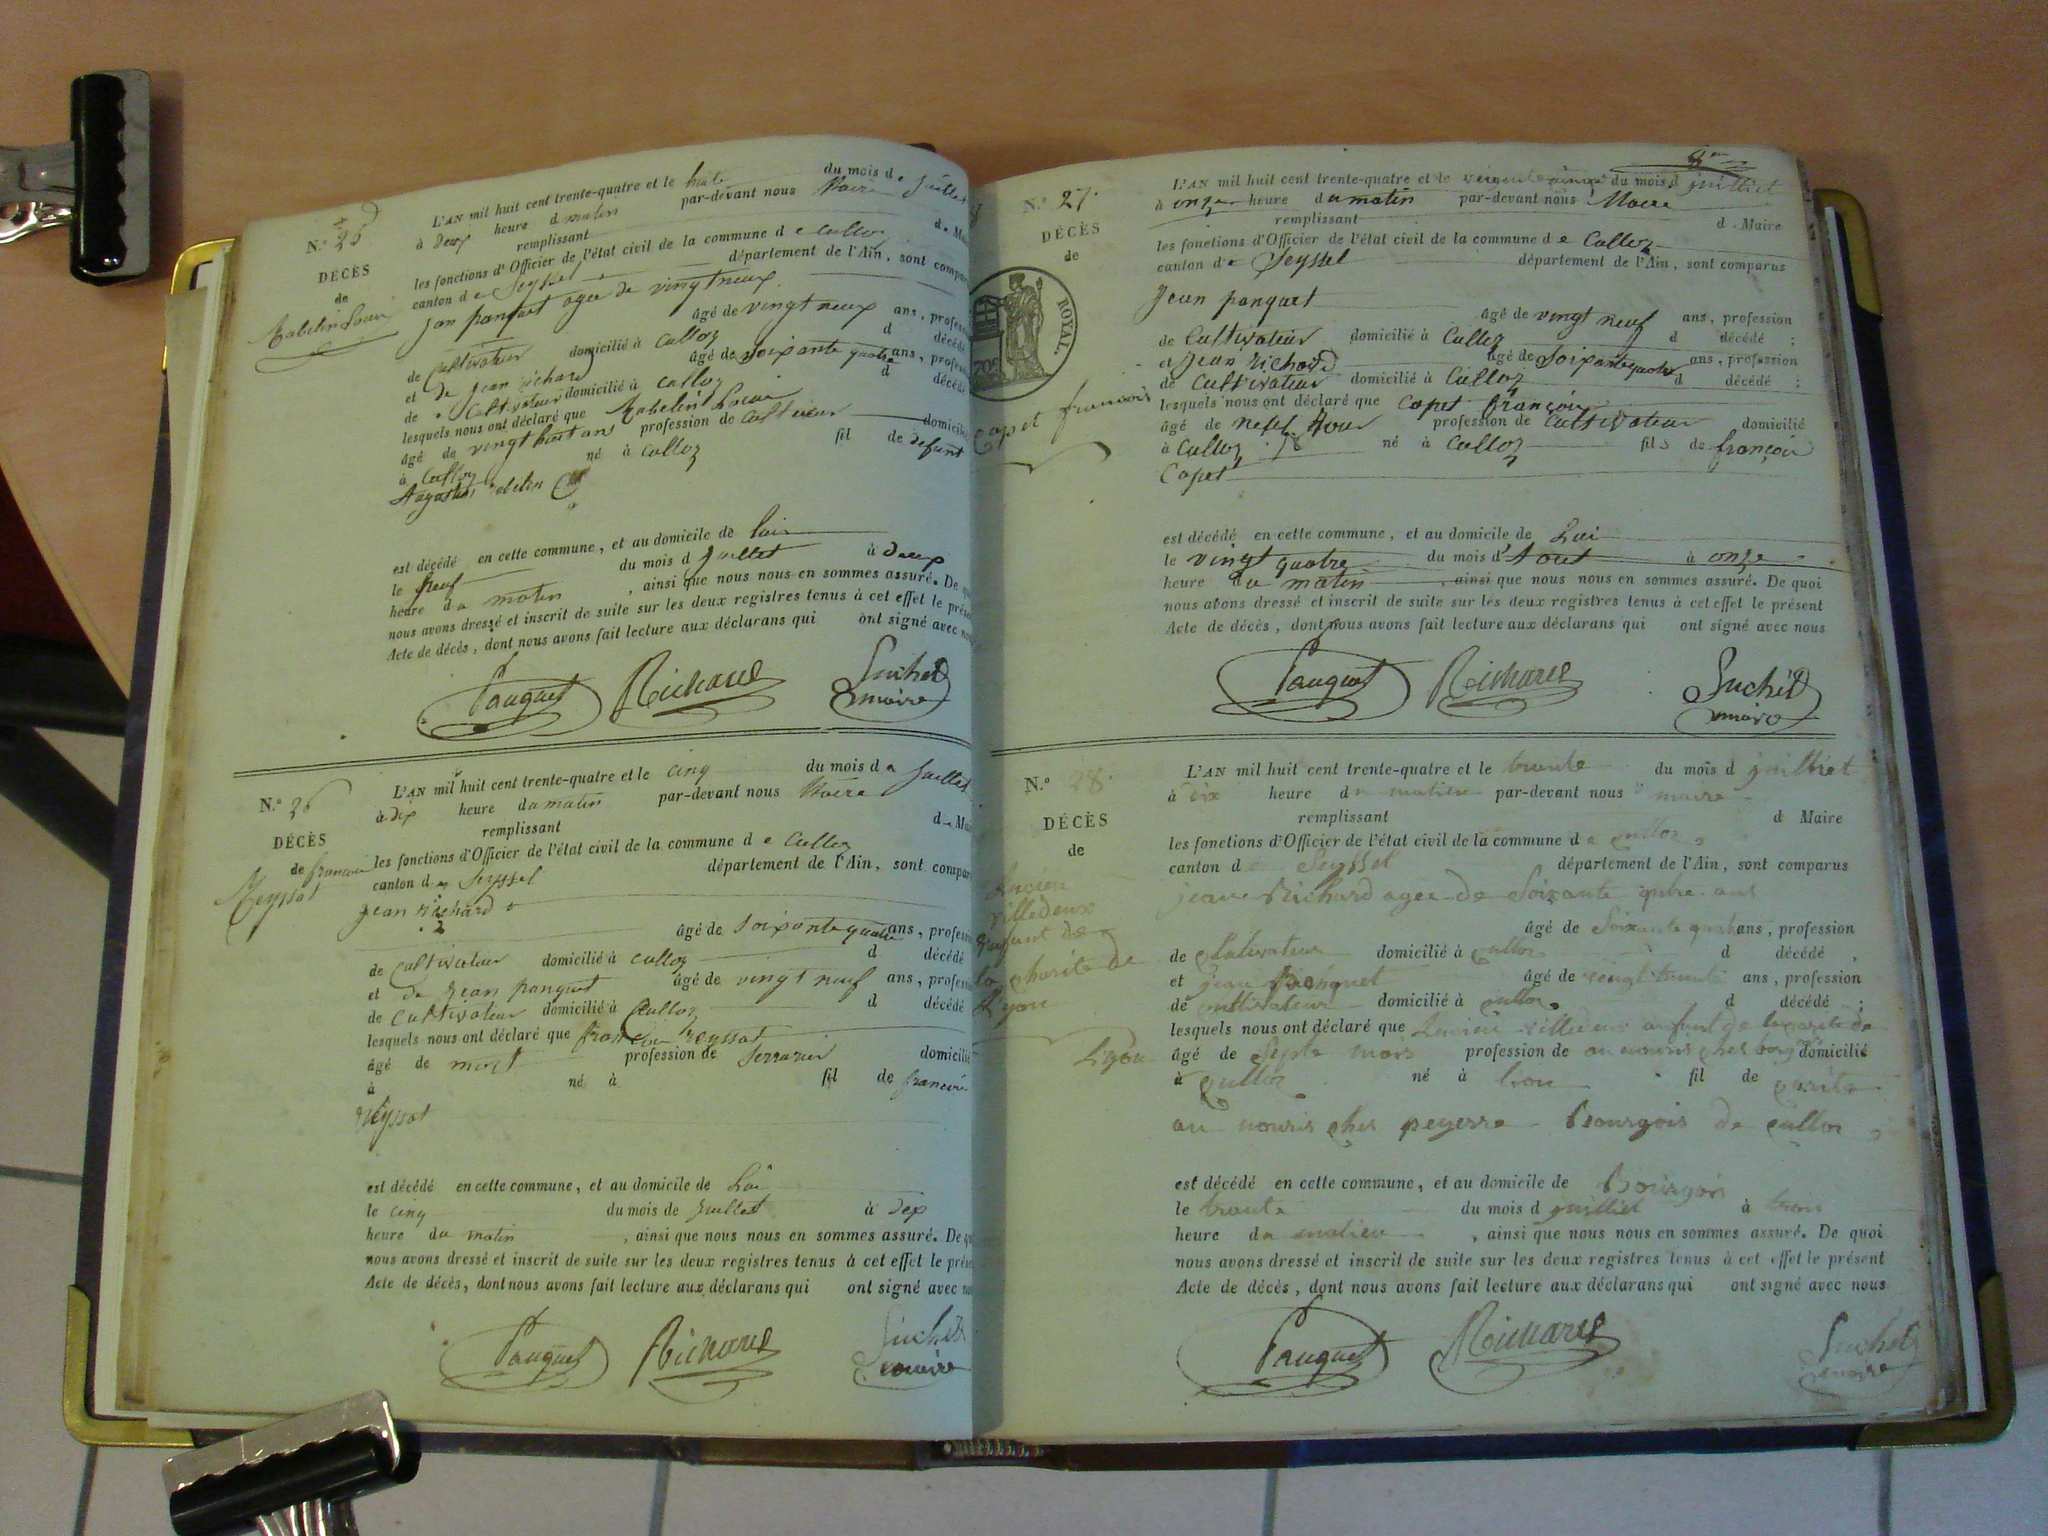 N.° 25
DÉCÈS
de
Rabelin Louis
L'AN mil huit cent trente-quatre et le huit du mois de Juillet
à deux heure du matin par-devant nous Maire
remplissant de Mai
les fonctions d'Officier de l'état civil de la commune de Culloz
canton de Seyssel département de l'Ain, sont compar
jan panquet agee de vingt neux
âgé de vingt neux ans, profess
de Cultivateur domicilié à Culloz d décédé
et de jean Richard âgé de Soixante quatre ans, profess
de Cultivateur domicilié à Culloz d décédé
lesquels nous ont déclaré que Rabelin Louis
âgé de vingt huit ans profession de domicilié
à Culloz né à Culloz fil de defunt
est décédé en cette commune, et au domicile de Lui
le neuf du mois d Juillet à deux
heure du matin, ainsi que nous nous en sommes assuré. De q
nous avons dressé et inscrit de suite sur les deux registres tenus à cet effet le prése
Acte de décès, dont nous avons fait lecture aux déclarans qui ont signé avec no
Pauquet Richard Suchet
maire
N.° 26
DÉCÈS
de françois
Reyssat
L'AN mil huit cent trente-quatre et le cinq du mois de Juillet
à dix heure du matin par-devant nous Maire
remplissant de Mai
les fonctions d'Officier de l'état civil de la commune de Culloz
canton de Seyssel département de l'Ain, sont compar
jean Richard
âgé de Soixante quatre ans, profess
de Cultivateur domicilié à Culloz d décédé
et de jean panquet âgé de vingt neuf ans, profess
de Cultivateur domicilié à Culloz d décédé
lesquels nous ont déclaré que françois Reyssat
âgé de profession de domicilié
à né à fil de françois
Reyssat
est décédé en cette commune, et au domicile de Lui
le cinq du mois de Juillet à dex
heure du matin, ainsi que nous nous en sommes assuré. De qu
nous avons dressé et inscrit de suite sur les deux registres tenus à cet effet le prése
Acte de décès, dont nous avons fait lecture aux déclarans qui ont signé avec no
Pauquet Richard Suchet
maire
N.° 27.
DÉCÈS
de
ROYAL.
Capet francois
L'AN mil huit cent trente-quatre et le du mois d juilliet
à onze heure du matin par-devant nous Maere
remplissant d Maire
les fonctions d'Officier de l'état civil de la commune de Culloz
canton de Seyssel département de l'Ain, sont comparus
Jean panquet
âgé de vingt neuf ans, profession
de Cultivateur domicilié à Culloz d décédé ;
et jean Richard âgé de Soixante quatre ans, profession
de Cultivateur domicilié à Culloz d décédé ;
lesquels nous ont déclaré que Capet françois
âgé de profession de Cultivateur domicilié
à Culloz né à Culloz fils de françois
Capet
est décédé en cette commune, et au domicile de Lui
le vingt quatre du mois d'Aout à onze
heure du matin, ainsi que nous nous en sommes assuré. De quoi
nous avons dressé et inscrit de suite sur les deux registres tenus à cet effet le présent
Acte de décès, dont nous avons fait lecture aux déclarans qui ont signé avec nous
Pauquet Richard Suchet
maire
N.° 28.
DÉCÈS
de
Lucien
villedeux
enfant de
la charite de
Lyon
Lyon
L'AN mil huit cent trente-quatre et le trente du mois d juilliet
à dix heure du matin par-devant nous maire
remplissant d Maire
les fonctions d'Officier de l'état civil de la commune de Culloz
canton de Seyssel département de l'Ain, sont comparus
jean Richard agee de Soixante qutre ans
âgé de Soixante quatre ans, profession
de Cultivateur domicilié à Culloz d décédé ,
et jean Panquet âgé de ans, profession
de cultivateur domicilié à Culloz d décédé ;
lesquels nous ont déclaré que Lucien villedeux enfant de la carite de
âgé de Septe mois profession de au nouris ches domicilié
à Culloz né à Lion fil de
au nouris ches peyerre Bourgois de Culloz
est décédé en cette commune, et au domicile de Bourgois
le trante du mois d juilliet à
heure du matien, ainsi que nous nous en sommes assuré. De quoi
nous avons dressé et inscrit de suite sur les deux registres tenus à cet effet le présent
Acte de décès, dont nous avons fait lecture aux déclarans qui ont signé avec nous
Pauquet Richard Suchet
maire